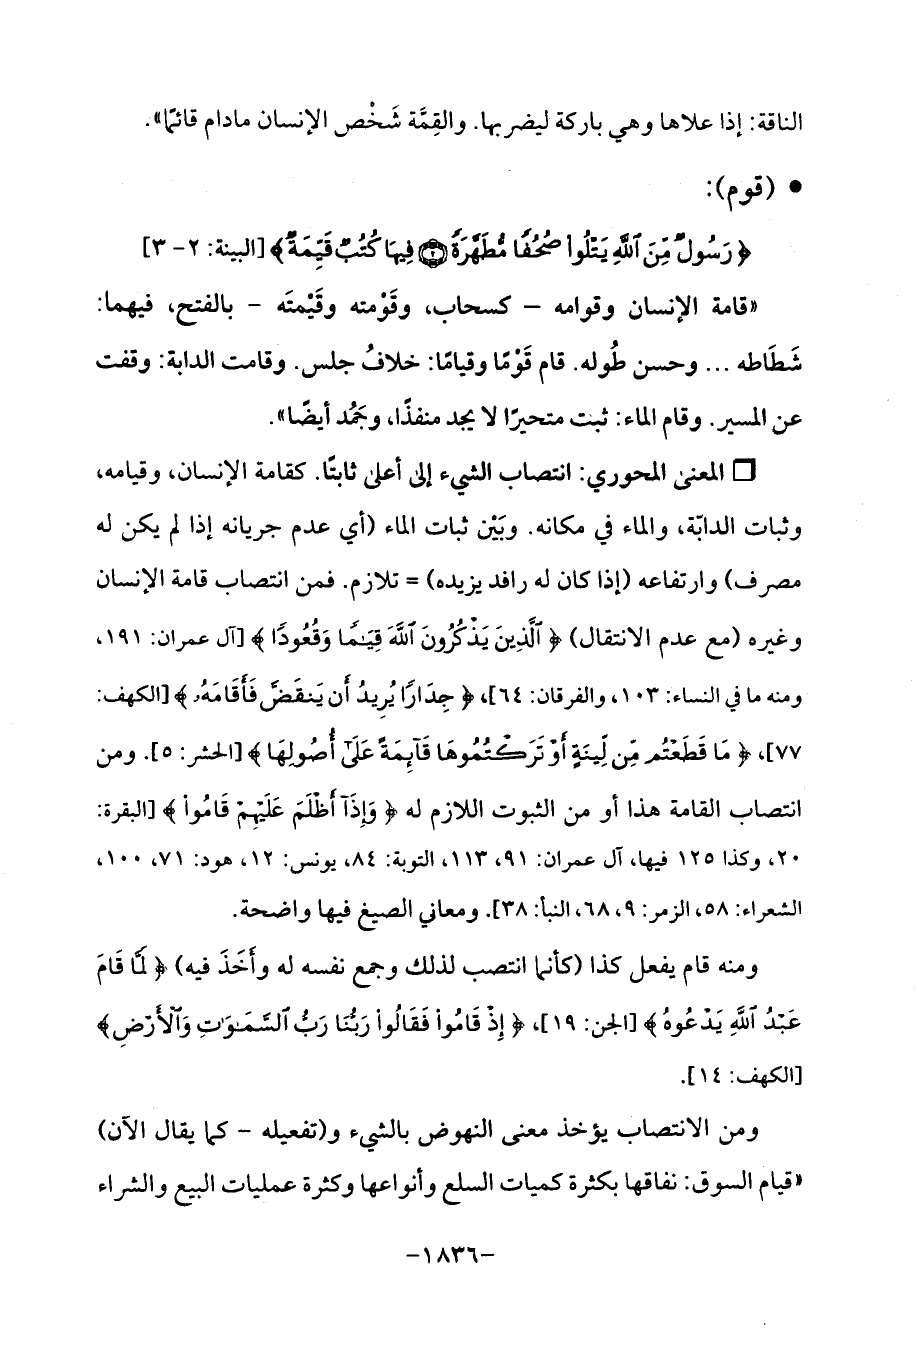 الناقة: إذا علاها وهي باركة ليضربها. والقِمَّة شَخْص الإنسان مادام قائمًا».
• (قوم):
﴿رَسُولٌ مِّنَ ٱللَّهِ يَتْلُوا۟ صُحُفًا مُّطَهَّرَةً ۝٢ فِيهَا كُتُبٌ قَيِّمَةٌ﴾ [البينة: ٢- ٣]
«قامة الإنسان وقوامه – كسحاب، وقَوْمته وقَيْمتَه – بالفتح، فيهما:
شَطَاطه ... وحسن طُوله. قام قَوْمًا وقيامًا: خلافُ جلس. وقامت الدابة: وقفت
عن المسير. وقام الماء: ثبت متحيرًا لا يجد منفذًا، وجَمُد أيضًا».
❒ المعنى المحوري: انتصاب الشيء إلى أعلى ثابتًا. كقامة الإنسان، وقيامه،
وثبات الدابّة، والماء في مكانه. وبَيْن ثبات الماء (أي عدم جريانه إذا لم يكن له
مصرف) وارتفاعه (إذا كان له رافد يزيده) = تلازم. فمن انتصاب قامة الإنسان
وغيره (مع عدم الانتقال) ﴿ ٱلَّذِينَ يَذْكُرُونَ ٱللَّهَ قِيَـٰمًا وَقُعُودًا ﴾ [آل عمران: ١٩١،
ومنه ما في النساء: ١٠٣، والفرقان: ٦٤]، ﴿ جِدَارًا يُرِيدُ أَن يَنقَضَّ فَأَقَامَهُۥ ﴾ [الكهف:
٧٧]، ﴿ مَا قَطَعْتُم مِّن لِّينَةٍ أَوْ تَرَكْتُمُوهَا قَآئِمَةً عَلَىٰٓ أُصُولِهَا ﴾ [الحشر: ٥]. ومن
انتصاب القامة هذا أو من الثبوت اللازم له ﴿ وَإِذَآ أَظْلَمَ عَلَيْهِمْ قَامُوا۟ ﴾ [البقرة:
٢٠، وكذا ١٢٥ فيها، آل عمران: ٩١، ١١٣، التوبة: ٨٤، يونس: ١٢، هود: ٧١، ١٠٠،
الشعراء: ٥٨، الزمر: ٩، ٦٨، النبأ: ٣٨]. ومعاني الصيغ فيها واضحة.
ومنه قام يفعل كذا (كأنما انتصب لذلك وجمع نفسه له وأَخَذَ فيه) ﴿ لَمَّا قَامَ
عَبْدُ ٱللَّهِ يَدْعُوهُ ﴾ [الجن: ١٩]، ﴿ إِذْ قَامُوا۟ فَقَالُوا۟ رَبُّنَا رَبُّ ٱلسَّمَـٰوَٰتِ وَٱلْأَرْضِ ﴾
[الكهف: ١٤].
ومن الانتصاب يؤخذ معنى النهوض بالشيء و(تفعيله – كما يقال الآن)
«قيام السوق: نفاقها بكثرة كميات السلع وأنواعها وكثرة عمليات البيع والشراء
-١٨٣٦-